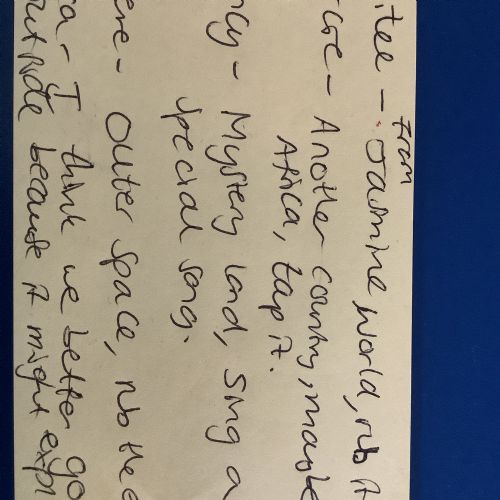 from
itee - Jasmine world, rub it
Another country, maybe
Africa, tap it.
ncy - Mystery land, sing a
special song.
ere - Outer space, rub the
ra - I think we better go
outside because it might expl